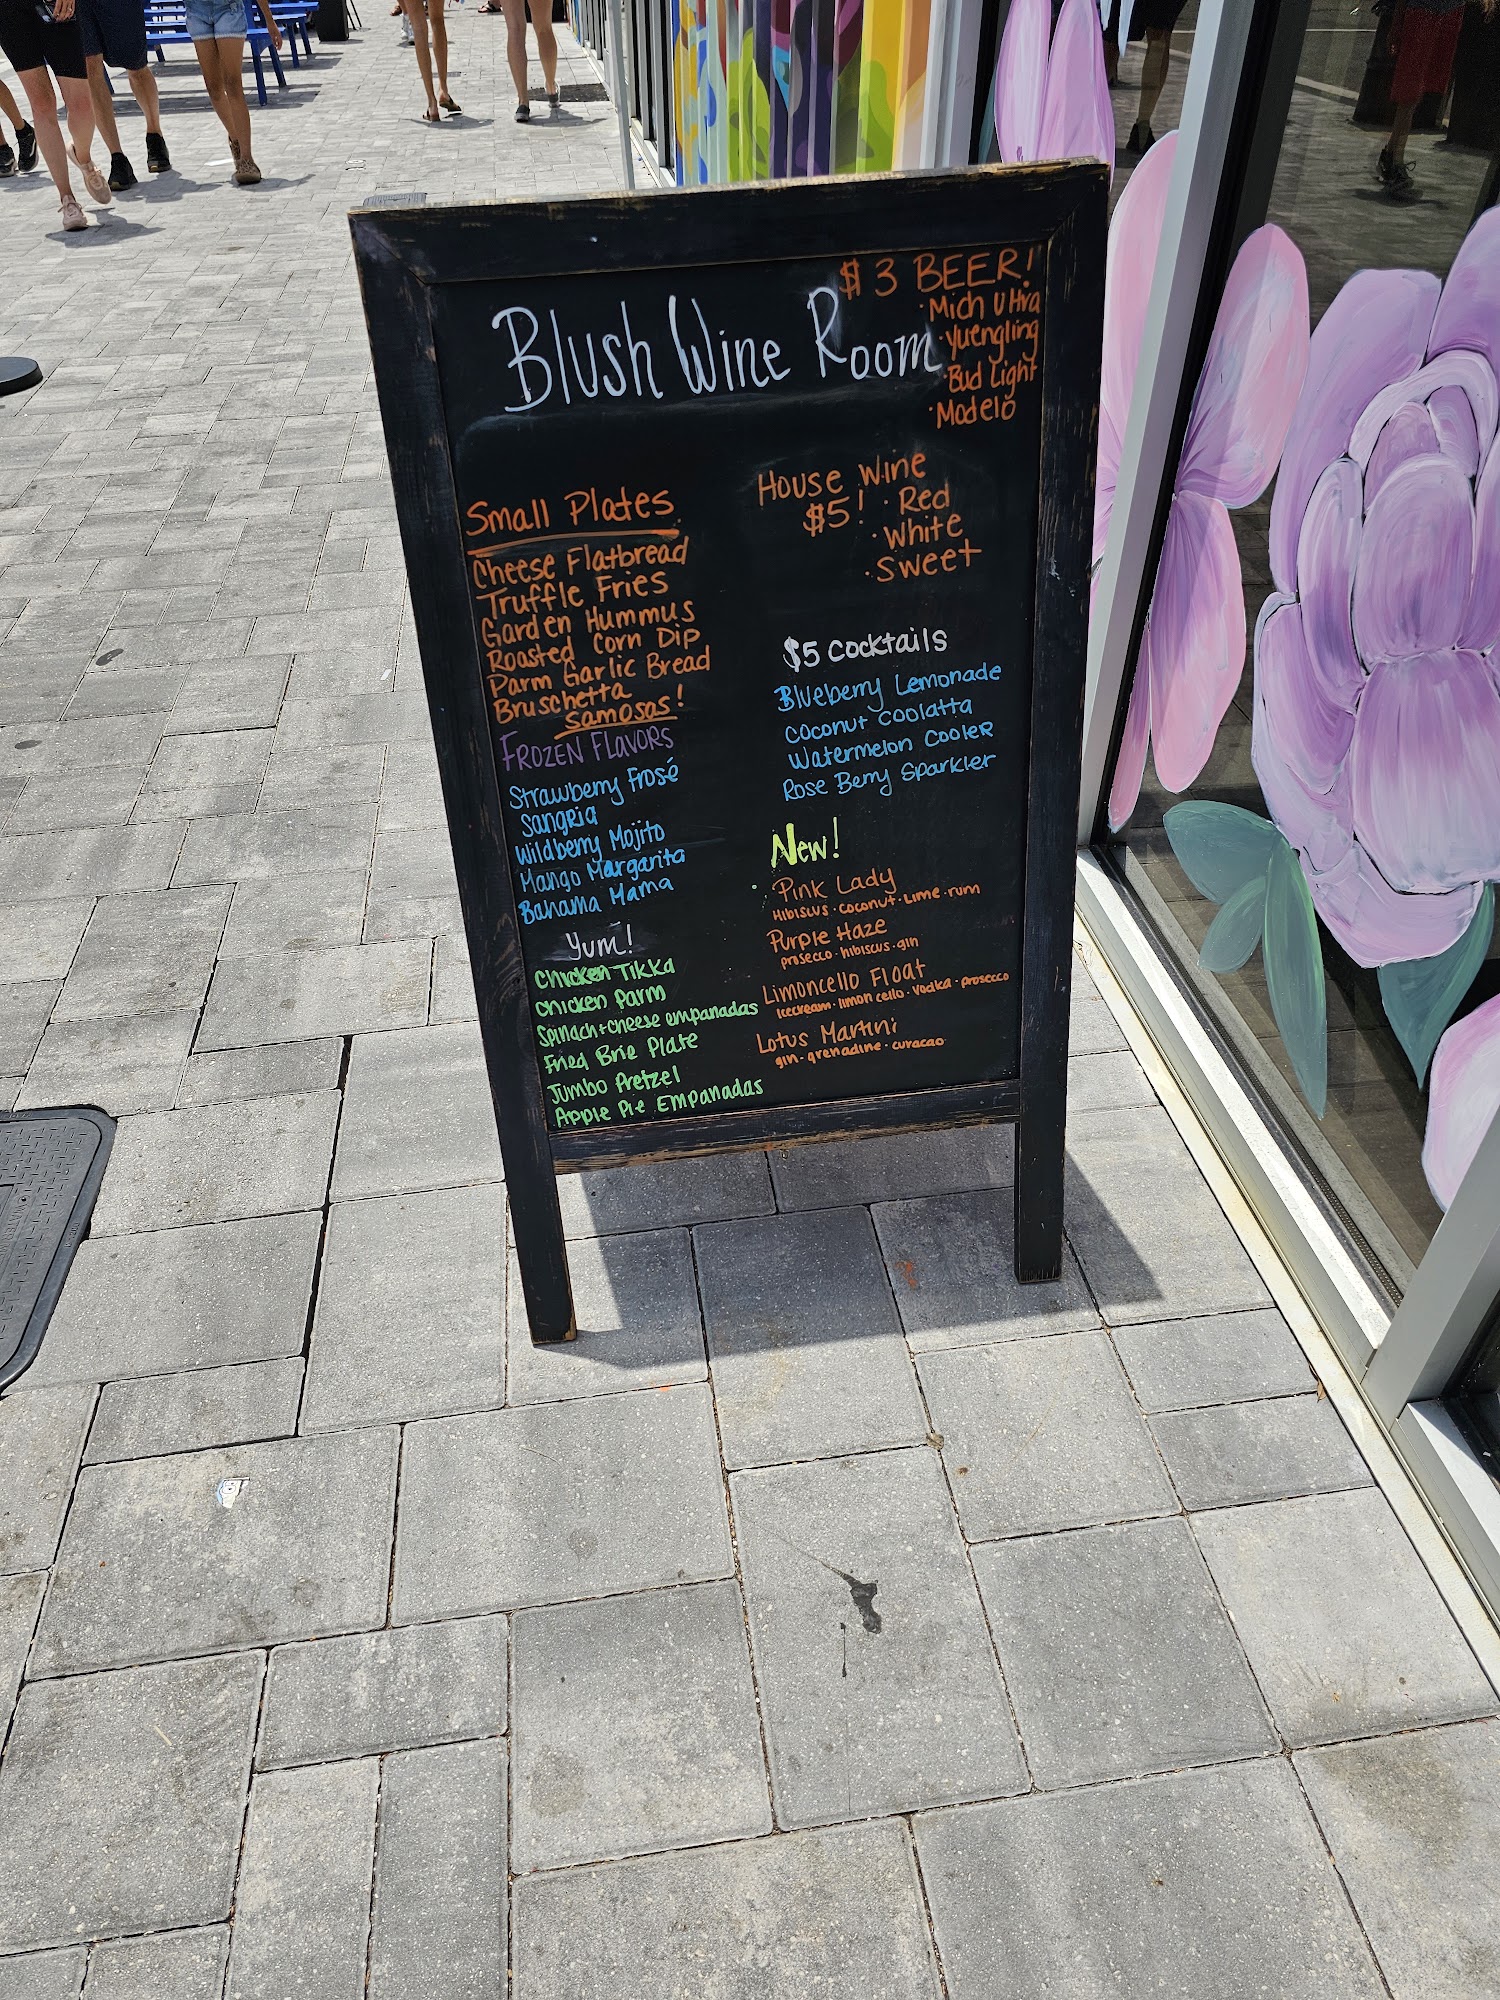 $3 BEER!
· Mich Ultra
· Yuengling
· Bud Light
· Modelo
Blush Wine Room
House Wine
$5! · Red
· White
· Sweet
Small Plates
Cheese Flatbread
Truffle Fries
Garden Hummus
Roasted Corn Dip
Parm Garlic Bread
Bruschetta
Samosas!
FROZEN FLAVORS
Strawberry Frosé
Sangria
Wildberry Mojito
Mango Margarita
Bahama Mama
Yum!
Chicken Tikka
Chicken Parm
Spinach+cheese empanadas
Fried Brie Plate
Jumbo Pretzel
Apple Pie Empanadas
$5 Cocktails
Blueberry Lemonade
Coconut Coolatta
Watermelon Cooler
Rose Berry Sparkler
New!
· Pink Lady
Hibiscus · coconut · Lime · rum
Purple Haze
prosecco · hibiscus · gin
Limoncello Float
Icecream · limon cello · vodka · prosecco
Lotus Martini
gin · grenadine · curacao